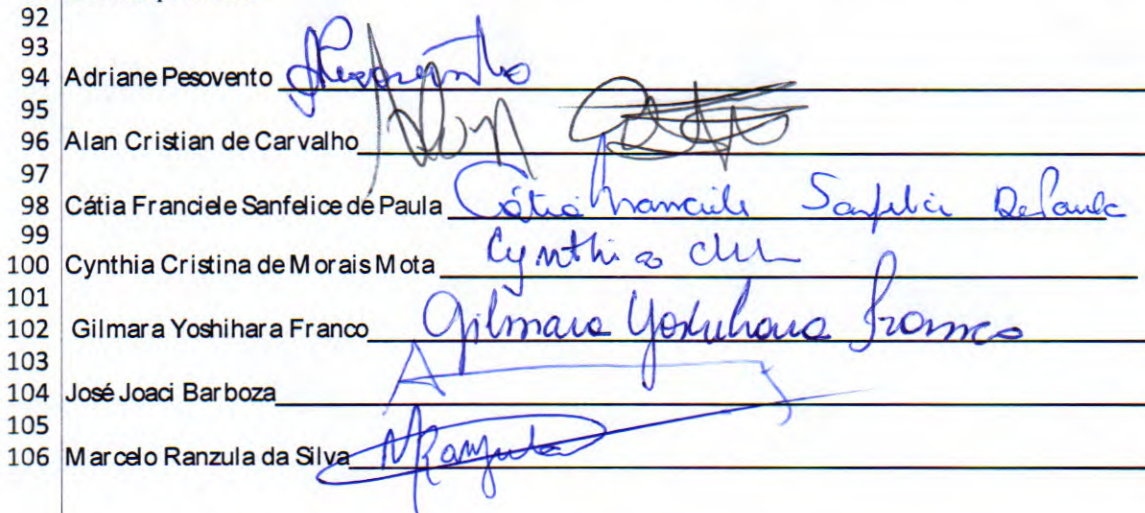 92
93
94 Adriane Pesovento
95
96 Alan Cristian de Carvalho Alan
97
98 Cátia Franciele Sanfelice de Paula Cátia Franciele Sanfelice De Paula
99
100 Cynthia Cristina de Morais Mota Cynthia
101
102 Gilmara Yoshihara Franco Gilmara Yoshihara Franco
103
104 José Joaci Barboza
105
106 Marcelo Ranzula da Silva MRanzula